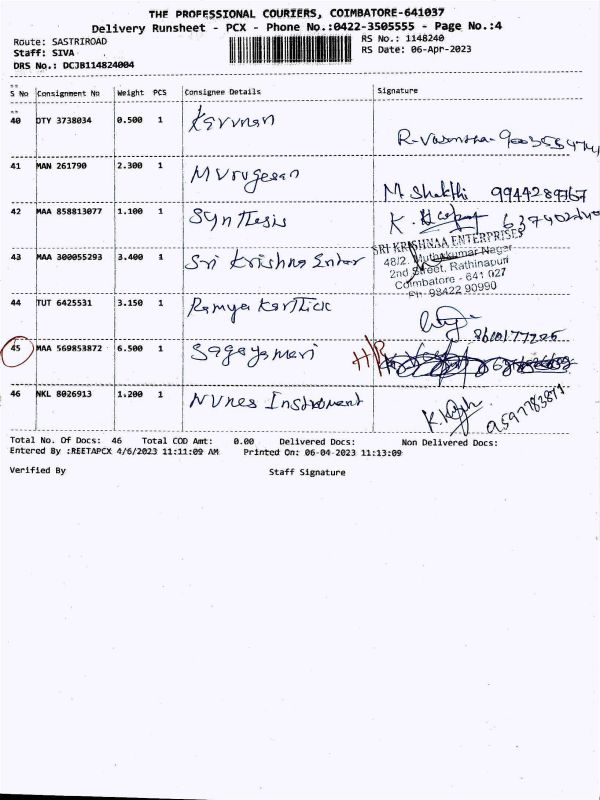 THE PROFESSIONAL COURIERS, COIMBATORE-641037
Delivery Runsheet - PCX - Phone No.:0422-3505555 - Page No.:4
Route: SASTRIROAD RS No.: 1148240
Staff: SIVA RS Date: 06-Apr-2023
DRS No.: DCJB114824004
S No Consignment No Weight PCS Consignee Details Signature
40 DTY 3738034 0.500 1 Karunan
41 MAN 261790 2.300 1 Murugesan
M. Shakthi 9944289767
42 MAA 858813077 1.100 1 Synthesis
K.
43 MAA 300055293 3.400 1 Sri Krishna Enter
SRI KRISHNAA ENTERPRISES
48/2, Muthukumar Nagar
2nd Street, Rathinapuri
Coimbatore - 641 027
Ph: 98422 90990
44 TUT 6425531 3.150 1 Ramya Karthick
8610177225
45 MAA 569853872 6.500 1 Sagayameri H/R
46 NKL 8026913 1.200 1 Nunes Instrument
9597783877
Total No. Of Docs: 46 Total COD Amt: 0.00 Delivered Docs: Non Delivered Docs:
Entered By :REETAPCX 4/6/2023 11:11:09 AM Printed On: 06-04-2023 11:13:09
Verified By Staff Signature